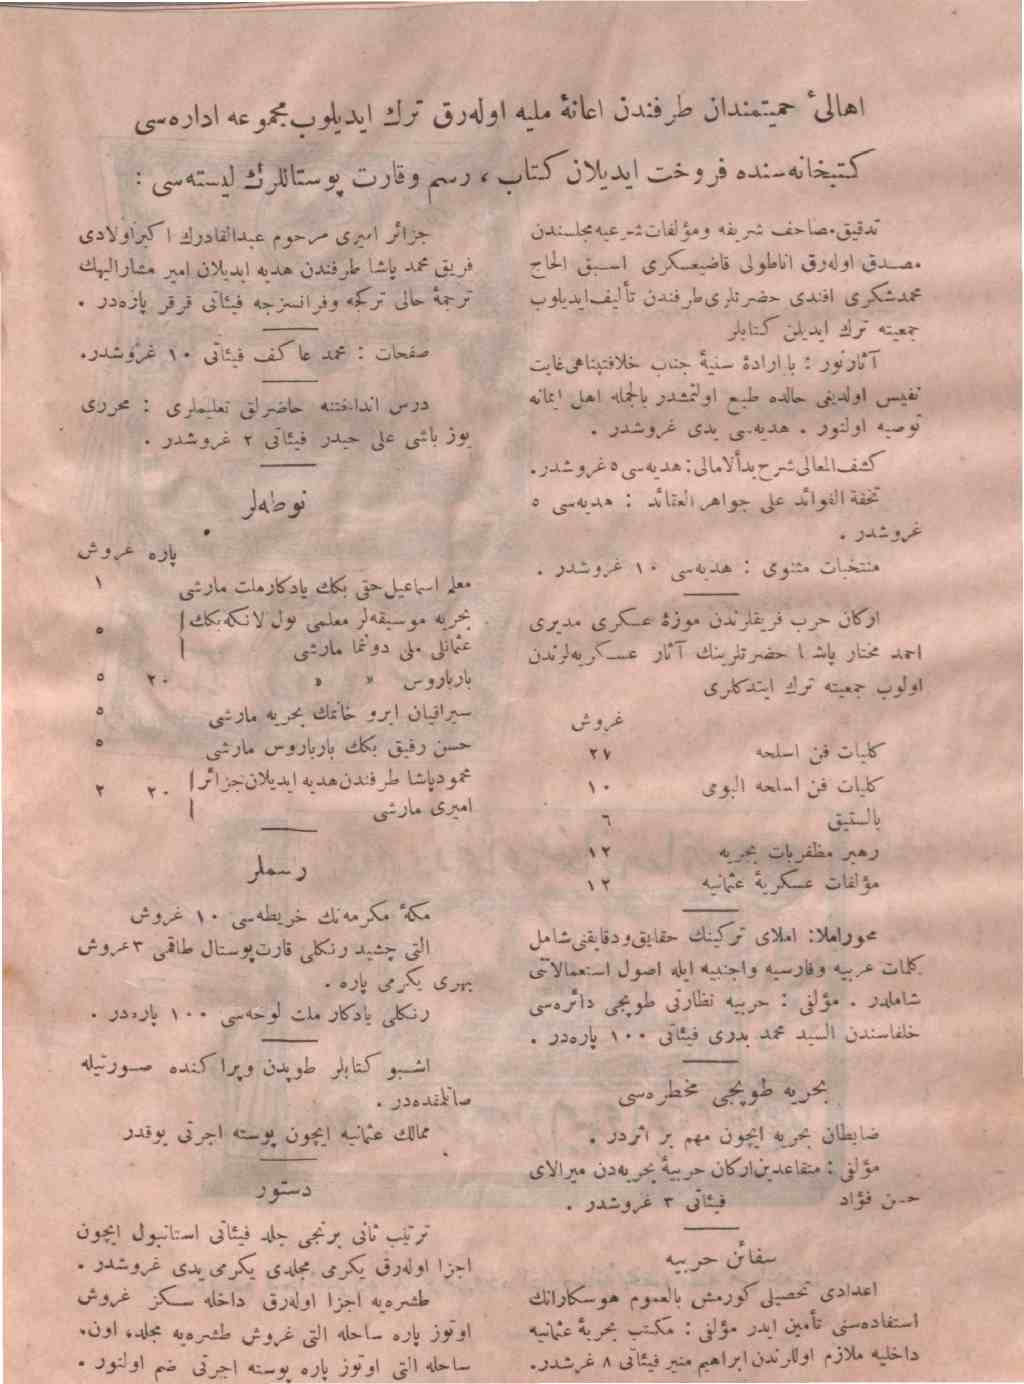 اهالیٔ حمیتمندان طرفندن اعانهٔ ملیه اولەرق ترك ایدیلوب مجموعه ادارەسی
كتبخانەسنده فروخت ایدیلان كتاب ، رسم وقارت پوستاللرك لیستەسی :
تدقیق مصاحف شریفه ومؤلفات شرعیه مجلسندن
مصدق اولەرق اناطولی قاضیعسكری اسبق الحاج
محمد شكری افندی حضرتلری طرفندن تألیف ایدیلوب
جمعیته ترك ایدیلن كتابلر
آثار نور : با ارادهٔ سنیهٔ جناب خلافتپناهی غایت
نفیس اولدیغی حالده طبع اولنمشدر بالجمله اهل ایمانه
توصیه اولنور . هدیەسی یدی غروشدر .
كشف المعالی شرح بدأ الامالی : هدیەسی ٥ غروشدر.
تحفة الفوائد علی جواهر العقائد : هدیەسی ٥
غروشدر .
منتخبات مثنوی : هدیەسی ١٠ غروشدر .
اركان حرب فریقلرندن موزهٔ عسكری مدیری
احمد مختار پاشا حضرتلرینك آثار عسكریەلرندن
اولوب جمعیته ترك ایتدكلری
غروش
كلیات فن اسلحه ٢٧
كلیات فن اسلحه البومی ١٠
بالستیق ٦
رهبر مظفریات بحریه ١٢
مؤلفات عسكریهٔ عثمانیه ١٢
محور املا : املای تركینك حقایق ودقایقنی شامل
كلمات عربیه وفارسیه واجنبیه ایله اصول استعمالاتنی
شاملدر . مؤلفی : حربیه نظارتی طوپجی دائرەسی
خلفاسندن السید محمد بدری فیئاتی ١٠٠ پارەدر .
بحریه طوپجی مخطرەسی
ضابطان بحریه ایچون مهم بر اثردر .
مؤلفی : متقاعدین اركان حربیهٔ بحریەدن میرالای
حسن فؤاد فیئاتی ٣ غروشدر .
سفائن حربیه
اعدادی تحصیلی كورمش بالعموم هوسكارانك
استفادەسنی تأمین ایدر مؤلفی : مكتب بحریهٔ عثمانیه
داخلیه ملازم اوللرندن ابراهیم منیر فیئاتی ٨ غرشدر.
جزائر امیری مرحوم عبدالقادرك اكبر اولادی
فریق محمد پاشا طرفندن هدیه ایدیلان امیر مشارالیهك
ترجمهٔ حالی تركجه وفرانسزجه فیئاتی قرقر پارەدر .
صفحات : محمد عاكف فیئاتی ١٠ غروشدر.
درس انداختنه حاضرلق تعلیملری : محرری
یوز باشی علی حیدر فیئاتی ٢ غروشدر .
نوطەلر
پاره غروش
معلم اسماعیل حقی بكك یادكار ملت مارشی ١
بحریه موسیقەلر معلمی پول لانكه بكك
عثمانلی ملی دوننما مارشی ٥
بارباروس » » ٢٠ ٥
سیراقیان ایرو خانمك بحریه مارشی ٥
حسن رفیق بكك بارباروس مارشی ٥
محمود پاشا طرفندن هدیه ایدیلان جزائر
امیری مارشی ٢٠ ٢
رسملر
مكهٔ مكرمەنك خریطەسی ١٠ غروش
التی چشید رنكلی قارت پوستال طاقمی ٣ غروش
بهری یكرمی پاره .
رنكلی یادكار ملت لوحەسی ١٠٠ پارەدر .
اشبو كتابلر طوپدن وپراكنده صورتیله
صاتلمقدەدر .
ممالك عثمانیه ایچون پوسته اجرتی یوقدر
دستور
ترتیب ثانی برنجی جلد فیئاتی استانبول ایچون
اجزا اولەرق یكرمی مجلدی یكرمی یدی غروشدر .
طشرەیه اجزا اولەرق داخله سكز غروش
اوتوز پاره ساحله التی غروش طشرەیه مجلده اون،
ساحله التی اوتوز پاره پوسته اجرتی ضم اولنور .